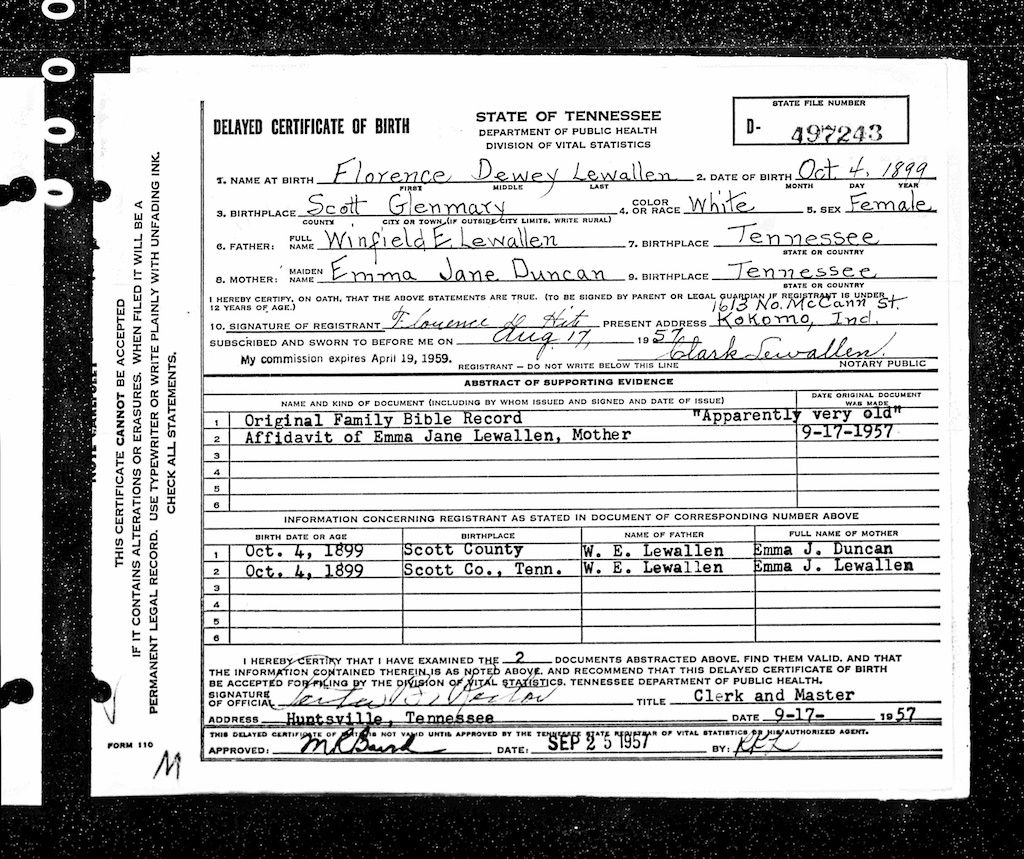 0 0 0 0
THIS CERTIFICATE CANNOT BE ACCEPTED
IF IT CONTAINS ALTERATIONS OR ERASURES. WHEN FILED IT WILL BE A
PERMANENT LEGAL RECORD. USE TYPEWRITER OR WRITE PLAINLY WITH UNFADING INK.
CHECK ALL STATEMENTS.
DELAYED CERTIFICATE OF BIRTH
STATE OF TENNESSEE
DEPARTMENT OF PUBLIC HEALTH
DIVISION OF VITAL STATISTICS
STATE FILE NUMBER
D- 497243
1. NAME AT BIRTH Florence Dewey Lewallen 2. DATE OF BIRTH Oct 4, 1899
FIRST MIDDLE LAST MONTH DAY YEAR
3. BIRTHPLACE Scott Glenmary 4. COLOR OR RACE White 5. SEX Female
COUNTY CITY OR TOWN (IF OUTSIDE CITY LIMITS, WRITE RURAL)
6. FATHER: FULL NAME Winfield E. Lewallen 7. BIRTHPLACE Tennessee
STATE OR COUNTRY
8. MOTHER: MAIDEN NAME Emma Jane Duncan 9. BIRTHPLACE Tennessee
STATE OR COUNTRY
I HEREBY CERTIFY, ON OATH, THAT THE ABOVE STATEMENTS ARE TRUE. (TO BE SIGNED BY PARENT OR LEGAL GUARDIAN IF REGISTRANT IS UNDER
12 YEARS OF AGE.)
1613 No. McCann St.
10. SIGNATURE OF REGISTRANT Florence D PRESENT ADDRESS Kokomo, Ind.
SUBSCRIBED AND SWORN TO BEFORE ME ON Aug. 17, 1957
My commission expires April 19, 1959. Clark Lewallen.
REGISTRANT – DO NOT WRITE BELOW THIS LINE NOTARY PUBLIC
ABSTRACT OF SUPPORTING EVIDENCE
NAME AND KIND OF DOCUMENT (INCLUDING BY WHOM ISSUED AND SIGNED AND DATE OF ISSUE) DATE ORIGINAL DOCUMENT WAS MADE
1 Original Family Bible Record "Apparently very old"
2 Affidavit of Emma Jane Lewallen, Mother 9-17-1957
3
4
5
6
INFORMATION CONCERNING REGISTRANT AS STATED IN DOCUMENT OF CORRESPONDING NUMBER ABOVE
BIRTH DATE OR AGE BIRTHPLACE NAME OF FATHER FULL NAME OF MOTHER
1 Oct. 4, 1899 Scott County W. E. Lewallen Emma J. Duncan
2 Oct. 4, 1899 Scott Co., Tenn. W. E. Lewallen Emma J. Lewallen
3
4
5
6
I HEREBY CERTIFY THAT I HAVE EXAMINED THE 2 DOCUMENTS ABSTRACTED ABOVE, FIND THEM VALID, AND THAT
THE INFORMATION CONTAINED THEREIN IS AS NOTED ABOVE, AND RECOMMEND THAT THIS DELAYED CERTIFICATE OF BIRTH
BE ACCEPTED FOR FILING BY THE DIVISION OF VITAL STATISTICS, TENNESSEE DEPARTMENT OF PUBLIC HEALTH.
SIGNATURE OF OFFICIAL TITLE Clerk and Master
ADDRESS Huntsville, Tennessee DATE 9-17- 1957
THIS DELAYED CERTIFICATE OF BIRTH IS NOT VALID UNTIL APPROVED BY THE TENNESSEE STATE REGISTRAR OF VITAL STATISTICS OR HIS AUTHORIZED AGENT.
APPROVED: DATE: SEP 25 1957 BY:
FORM 110
M